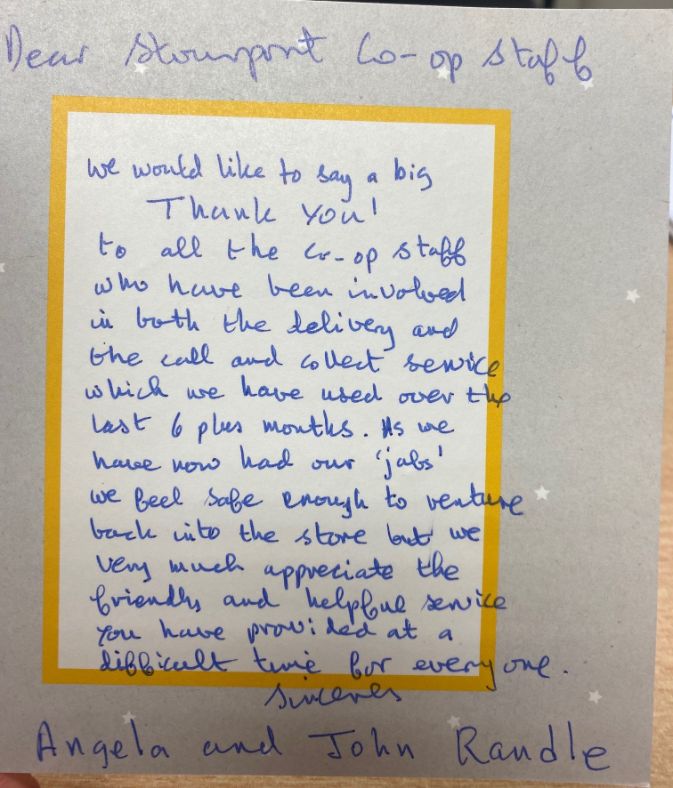 Dear Stourport Co-op Staff
We would like to say a big
Thank You!
to all the Co-op Staff
who have been involved
in both the delivery and
the call and collect service
which we have used over the
last 6 plus months. As we
have now had our 'jabs'
we feel safe enough to venture
back into the store but we
very much appreciate the
friendly and helpful service
you have provided at a
difficult time for everyone.
Sincerely
Angela and John Randle